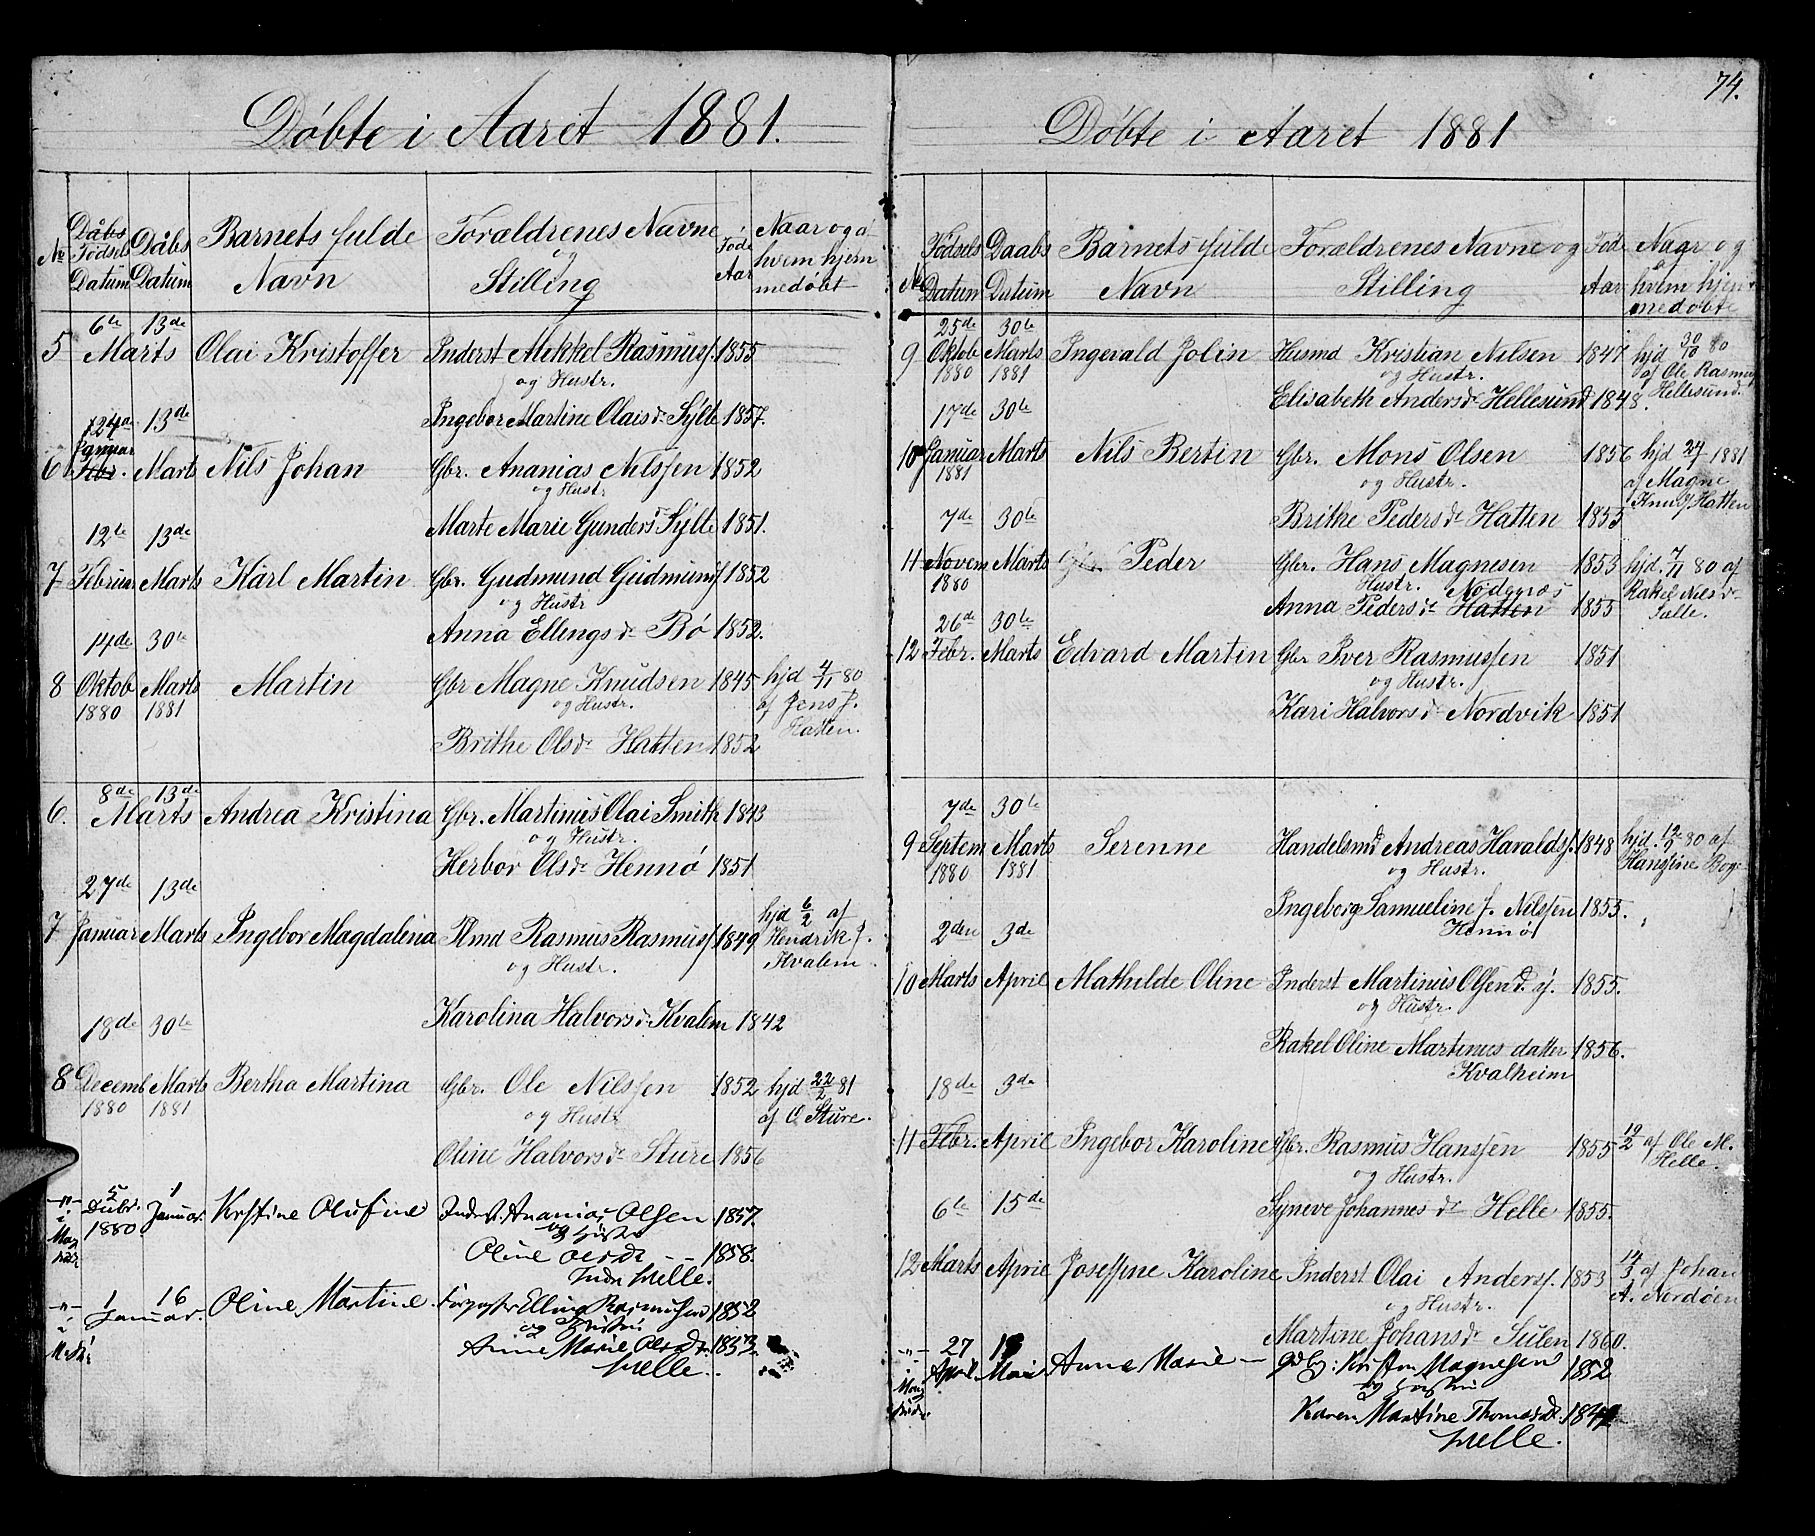 Döbte i Aaret 1881.
No Dåbs Födsels Datum Dåbs Datum Barnets fulde Navn Forældrenes Navne og Stilling Föde Aar Naar og af hvem hjemmedøbt
6te 13de
5 Marts Olai Kristoffer Inderst Mekkel Rasmusf. 1855
og Hustr.
Ingebor Martine Olaisdr Sÿlte 1857.
24de 13de
Januar
6 Febr. Marts Nils Johan Gbr. Ananias Nilssen 1852
og Hustr
Marte Marie Gundersd Sÿlte 1851.
12te 13de
7 Februar Marts Karl Martin Gbr. Gudmund Gudmunsf 1852
og Hustr
Anna Ellingsdr Bö 1852.
14de 30te
8 Oktob Marts Martin Gbr Magne Knudsen 1845 hjd 4/11 80
1880 1881 og Hustr. af Jens J.
Brithe Olsdr Hatten 1852 Hatten.
8de 13de
6. Marts Andrea Kristina Gbr. Martinus Olai Smith 1843
og Hustr.
Herbor Olsdr Hennö 1851
27de 13de
7 Januar Marts Ingebor Magdalena Plmd Rasmus Rasmusf 1849 hjd 6/2 af
og Hustr. Hendrik J. Kvalem
Karolina Halvorsdr Kvalem 1842
18de 30te
8 Decemb Marts Bertha Martina Gbr. Ole Nilssen 1852 hjd 22/2 81
1880 1881 og Hustr af O Sture.
Oline Halvorsdr Sture 1856
-"- 5 1
i Decbr. Januar. Kristine Olufine Inderst. Ananias Olsen 1857
1880. og Hustru
Oline Olsdr -- 1858.
Indr Helle.
-"- 1 16
i Januar. Oline Martine. Forpagter Elling Rasmussen 1852
og Hustru
Anne Marie Olsdr. 1853.
Helle.
74.
Döbte i Aaret 1881
No Födsels Datum Daabs Datum Barnets fulde Navn Forældrenes Navne og Stilling Föd Aar Naar og af hvem hjemmedøbte
25de 30te
9 Oktob Marts Ingevald Jolin Husmd Kristian Nilsen 1847 hjd 30/10 80
1880 1881 og Hustr. af Ole Rasmus
Elisabeth Andersdr Hellesund 1848. Hellesund.
17de 30te
10 Januar Marts Nils Bertin Gbr. Mons Olsen 1856 hjd 27/1 1881
1881 og Hustr. af Magne
Brithe Pedersdr Hatten 1855 Knudf Hatten
7de 30te
11 Novem Marts Peder Gbr. Hans Magnesen 1853 hjd. 7/11 80 af
1880 Hustr. Nödgvos Rakel Nilsdr
Anna Pedersdr Hatten 1855 Salle.
26de 30te
12 Febr. Marts Edvard Martin Gbr Iver Rasmussen 1851
og Hustr.
Kari Halvorsdr Nordvik 1851
7de 30te
9 Septem Marts Serenne Handelsmd Andreas Haraldsf. 1848 hjd. 12/9 80 af
1880 1881 og Hustr. Hansine Bog
Ingeborg Samueline f. Nilssen 1855.
Hennö
2den 3de
10 Marts April Mathilde Oline Inderst Martinus Olsen d. y. 1855.
og Hustr.
Rakel Oline Martinus datter 1856.
Kvalheim
18de 3de
11 Febr. April Ingebor Karoline Gbr. Rasmus Hanssen 1855 19/2 af Ole M.
og Hustr. Helle.
Syneve Johannesdr Helle 1855.
6te 15de
12 Marts April Joseffine Karoline Inderst Olai Andersf. 1853 14/3 af Johan
og Hustr. A. Nordöen
Martine Johansdr Sulen 1860.
-"- 27
i April Mai Anne Marie - Gdbg: Kristen Magnesen 1852
og Hustru
Karen Martine Thomasdr.
Helle.